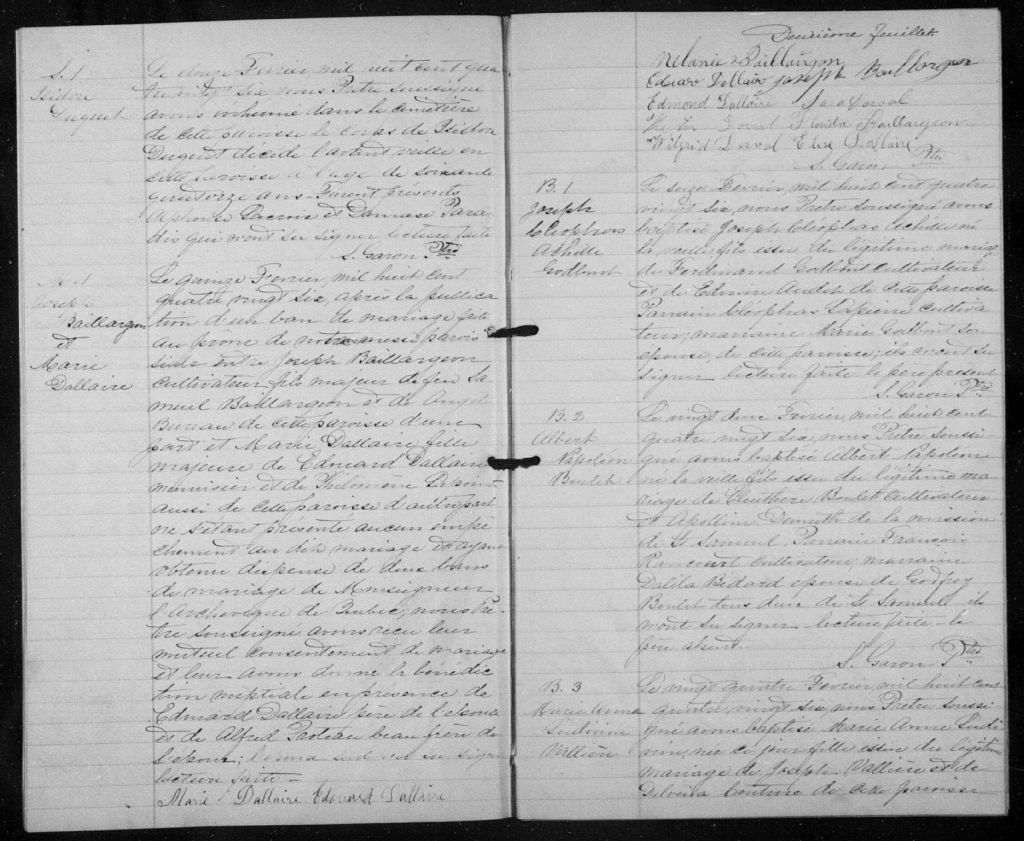 S. 1
Isidore
Duquet
Le douze Fevrier, mil huit cent qua
tre vingt six nous Pretre soussigné
avons inhumé dans le cimetière
de cette paroisse le corps de Isidore
Duquet décédé l'avant veille en
cette paroisse à l'age de soixante
quatorze ans. Furent présents
Alphonse Lacroix et Damase Para
dis qui n'ont su signer lecture faite
S. Garon Ptre
M. 1
Joseph
Baillargeon
et
Marie
Dallaire
Le quinze Fevrier, mil huit cent
quatre vingt six, après la publica
tion d'un ban de mariage faite
au prone de notre messe parois
siale entre Joseph Baillargeon
cultivateur fils majeur de feu Sa
muel Baillargeon et de Anget
Bureau de cette paroisse d'une
part et Marie Dallaire fille
majeure de Edouard Dallaire
menuisier et de Philomene
aussi de cette paroisse d'autre part
ne s'étant présenté aucun empê
chement au dit mariage et ayant
obtenu dispense de deux bans
de mariage de Monseigneur
l'Archevêque de Quebec, nous Prê
tre soussigné avons recu leur
mutuel consentement de mariage
et leur avons donné la bénédic
tion nuptiale en présence de
Edouard Dallaire père de l'épouse
et de Alfred Proteau beau frère de
l'époux; l'époux seul n'a su signer
lecture faite
Marie Dallaire Edouard Dallaire
Deuxième feuillet
Mélanie Baillargon
Eduar Dallair Joseph Baillargeon
Edmond Dallaire Sara Dorval
Dorval Florida Baillargeon
Wilfrid Dorval Elise Dallaire
S. Garon Ptre
B. 1
Joseph
Cléophas
Achille
Godbout
Le seize Fevrier, mil huit cent quatre
vingt six, nous Pretre soussigné avons
baptisé Joseph Cléophas Achille né
la veille fils issu du légitime mariage
de Ferdinand Godbout cultivateur
et de Edwire Audet de cette paroisse
Parrain Cléophas Lapierre cultiva
teur, marraine Marie Godbout son
epouse, de cette paroisse; ils n'ont su
signer lecture faite le père present
S. Garon Ptre
B. 2
Albert
Napoléon
Boulet
Le vingt deux Fevrier, mil huit cent
quatre vingt six, nous Pretre soussi
gné avons baptisé Albert Napoleon
né la veille fils issu du légitime ma
riage de Eleuthere Boulet cultivateur
et Apolline Demuth de la mission
de St Samuel Parrain François
Rancourt cultivateur, marraine
Dalila Bédard épouse de Godfroy
Boulet tous deux de St Samuel ils
n'ont su signer lecture faite le
père absent
S. Garon Ptre
B. 3
Marie Anna
Vallière
Le vingt quatre Fevrier, mil huit cent
quatre vingt six, nous Pretre soussi
gné avons baptisé Marie Anna
née ce jour fille issue du légitime
mariage de Joseph Vallière et de
Delvina Couture de cette paroisse